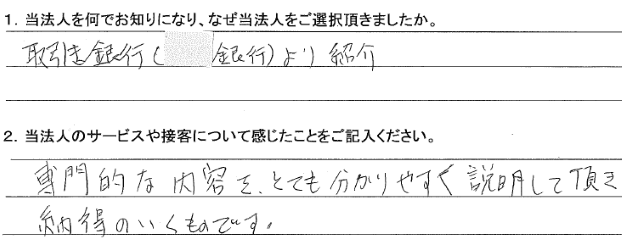 1．当法人を何でお知りになり、なぜ当法人をご選択頂きましたか。
取引き銀行(銀行)より紹介
2．当法人のサービスや接客について感じたことをご記入ください。
専門的な内容を、とても分かりやすく説明して頂き
納得のいくものです。